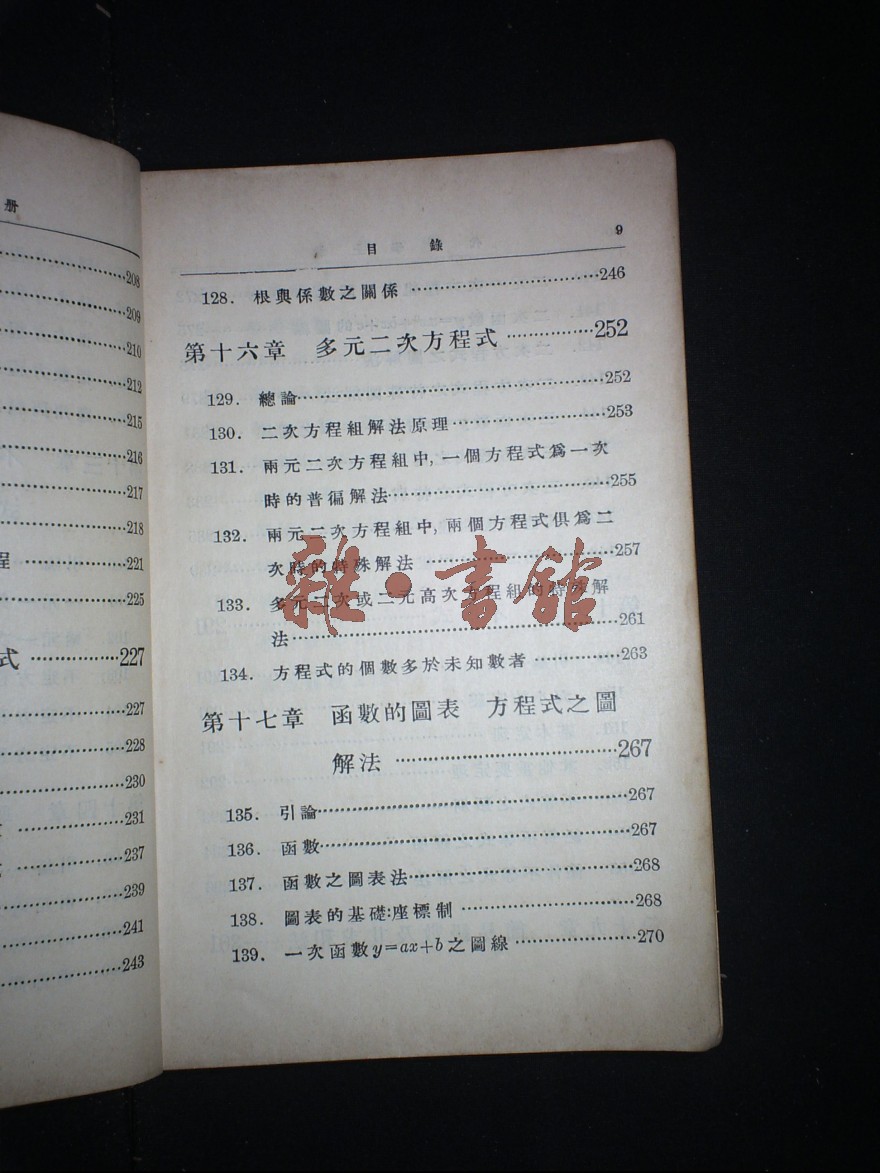 册
208
209
210
212
215
216
217
218
程 221
225
式 227
227
228
230
231
237
239
241
243
目 錄 9
128. 根與係數之關係 246
第十六章 多元二次方程式 252
129. 總論 252
130. 二次方程組解法原理 253
131. 兩元二次方程組中,一個方程式爲一次
時的普徧解法 255
132. 兩元二次方程組中,兩個方程式俱爲二
次時的特殊解法 257
133. 多元二次或二元高次方程組的特殊解
法 261
134. 方程式的個數多於未知數者 263
第十七章 函數的圖表 方程式之圖
解法 267
135. 引論 267
136. 函數 267
137. 函數之圖表法 268
138. 圖表的基礎:座標制 268
139. 一次函數y=ax+b之圖線 270
雜·書館